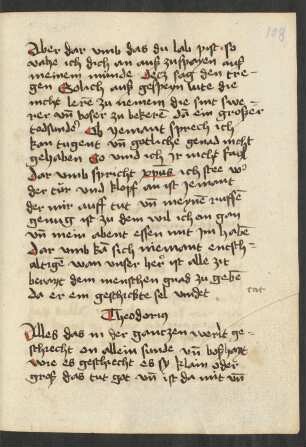 108
Aber dar vmb das du lab pist so
vahe ich dich an auß zuspayen auß
meinem munde Hec3 sag den tre-
gen Solich auß gespeyn lute die
nicht lere zu nemem die sint swe-
rer vñ boser zu bekere dañ ein grosser
todsunder Ob yemant sprech ich
kan tugent vñ gotliche genad nicht
gehaben So wird ich ir nicht
dar vmb spricht xpus ich stee vor
der tür vnd klopf an ist yemant
der mir auff tut vñ meyne ruffen
genug ist zu dem wil ich in gan
vñ mein abent essen mit im habe
Dar vmb kã sich niemant entsch-
altige wan vnser her ist alle zit
berayt dem menschen gnad zu gebe
da er ein geschickte sel vindet
tut
Theodorus
Alles das in der gantczen werlt ge-
schiecht on allein sunde vñ boßhayt
wie es geschiecht es sy klain oder
groß das tut got vñ ist da mit vñ